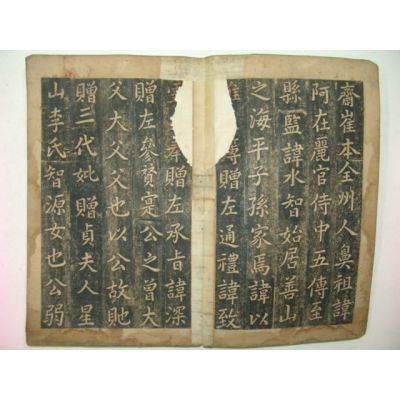 齋崔本全州人鼻祖諱
阿在麗官侍中五傳至
縣監諱水智始居善山
之海平子孫家焉諱以
贈左通禮諱致
贈左承旨諱深
贈左參贊寔公之曾大
父大父父也以公故貤
贈三代妣贈貞夫人星
山李氏智源女也公弱